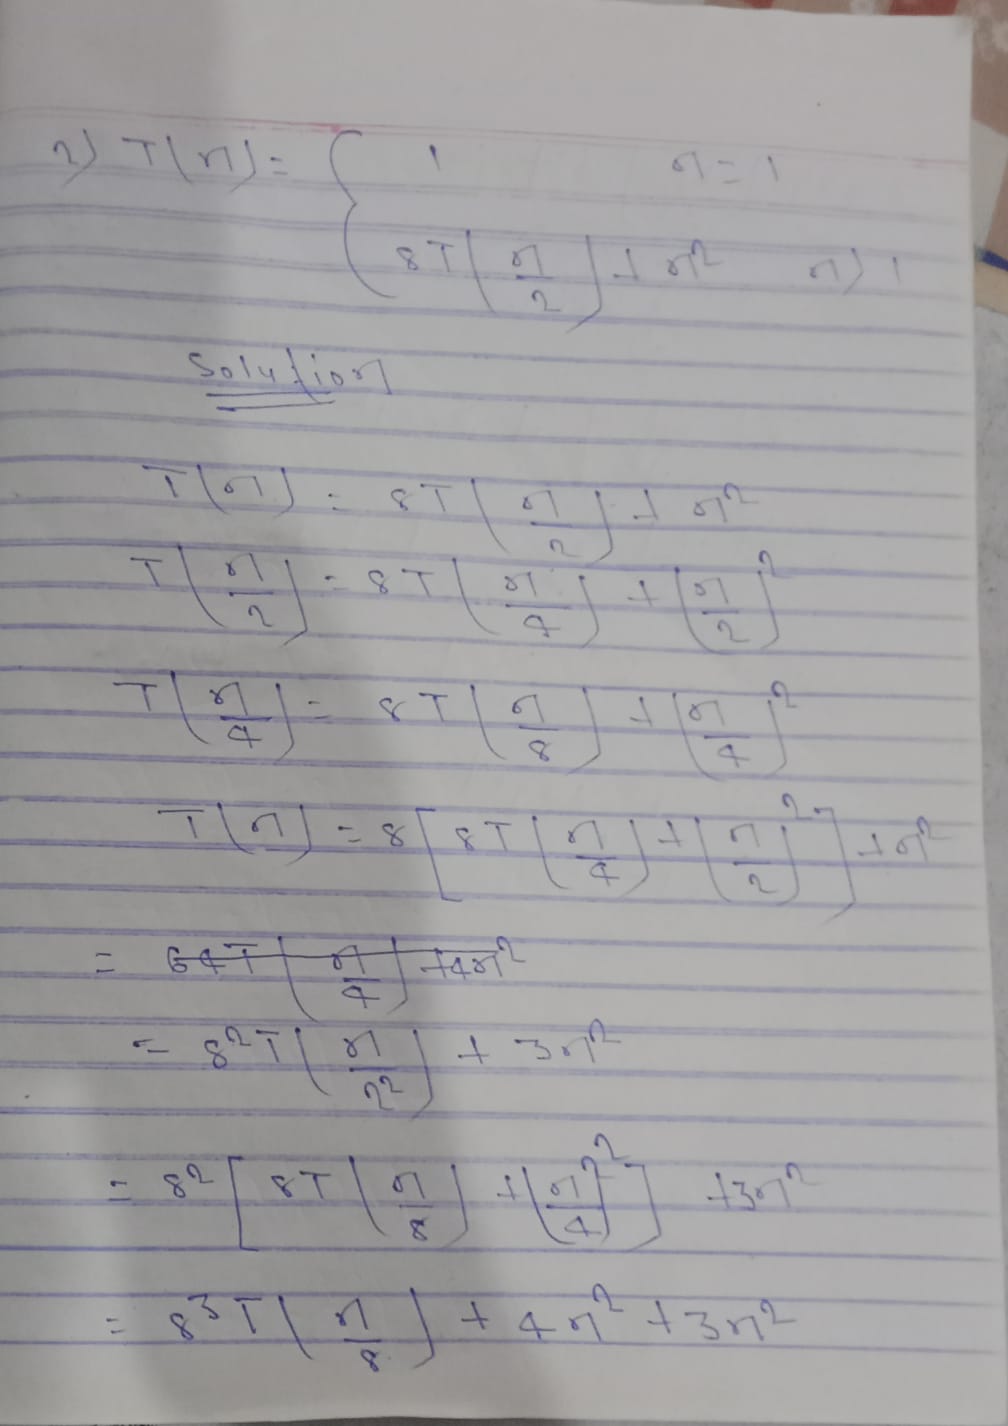 2) T(n) = { 1 n = 1
8T(n/2) + n² n > 1
Solution
T(n) = 8T(n/2) + n²
T(n/2) = 8T(n/4) + (n/2)²
T(n/4) = 8T(n/8) + (n/4)²
T(n) = 8[8T(n/4) + (n/2)²] + n²
= 64T(n/4) + 4n²
= 8²T(n/2²) + 3n²
= 8²[8T(n/8) + (n/4)²] + 3n²
= 8³T(n/8) + 4n² + 3n²